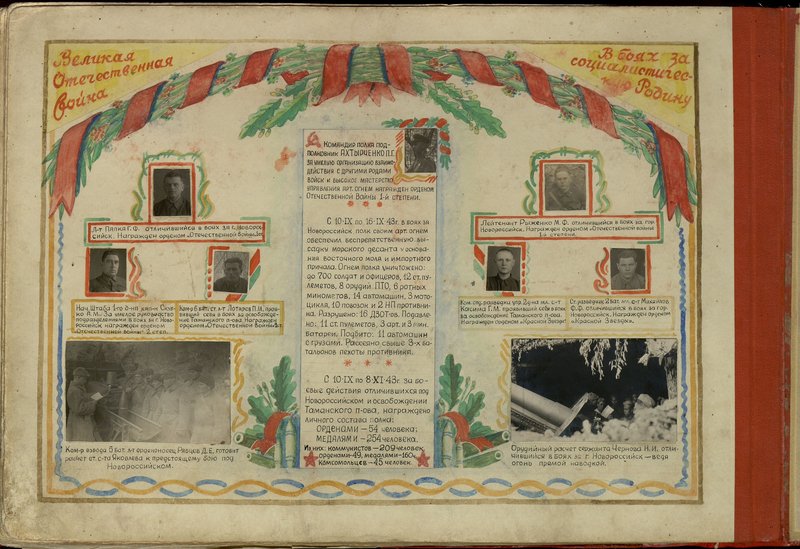 Великая
Отечественная
Война
В боях за
социалистичес-
кую Родину
Командир полка под-
полковник Ахтырченко П.Г.
за умелую организацию взаимо-
действия с другими родами
войск и высокое мастерство
управления арт. огнем награжден орденом
Отечественной Войны 1-й степени.
С 10-IX по 16-IX-43г. в боях за
Новороссийск полк своим арт. огнем
обеспечил беспрепятственную вы-
садку морского десанта у основа-
ния восточного мола и импортного
причала. Огнем полка уничтожено:
до 700 солдат и офицеров, 12 ст. пу-
леметов, 8 орудий ПТО, 6 ротных
минометов, 14 автомашин, 3 мото-
цикла, 10 повозок и 2 НП противни-
ка. Разрушено: 16 ДЗОТов. Подавле-
но: 11 ст. пулеметов, 3 арт. и 3 мин.
батареи. Подбито: 11 автомашин
с грузами. Рассеяно свыше 3-х ба-
тальонов пехоты противника.
С 10-IX по 8-XI-43г. за бо-
евые действия отличившихся под
Новороссийском и освобождении
Таманского п-ова, награждено
личного состава полка:
Орденами – 54 человека;
Медалями – 254 человека.
Из них: коммунистов – 209 человек,
орденами-49, медалями-160,
комсомольцев – 45 человек.
Л-т Пялка Г.Ф. отличившийся в боях за г. Новорос-
сийск. Награжден орденом „Отечественной войны"
Нач. штаба 1-го
А.М. за умелое руководство
подразделениями в боях за г. Ново-
российск награжден орденом
„Отечественной войны" 2 степ.
Ком-р 6 бат. ст. л-т Лотарев П.М. про-
явивший себя в боях за освобожде-
ние Таманского п-ова. Награжден
орденом „Отечественной войны"
Ком-р взвода 5 бат. л-т орденоносец Рябцев Д.Е. готовит
расчет ст. с-та Яковлева к предстоящему бою под
Новороссийском.
Лейтенант Рыженко М.Ф. отличившийся в боях за гор.
Новороссийск. Награжден орденом „Отечественной войны
1-й степени.
Ком. отд. разведки упр. 2-го д-на мл. с-т
Касимха Г.М. проявивший себя в боях
за освобождение Таманского п-ова.
Награжден орденом „Красной Звезды"
Ст. разведчик 2 бат. мл. с-т Михайлов
Ф.Ф. отличившийся в боях за гор.
Новороссийск. Награжден орденом
„Красной Звезды".
Орудийный расчет сержанта Чернова Н.И. отли-
чившийся в боях за г. Новороссийск – ведя
огонь прямой наводкой.